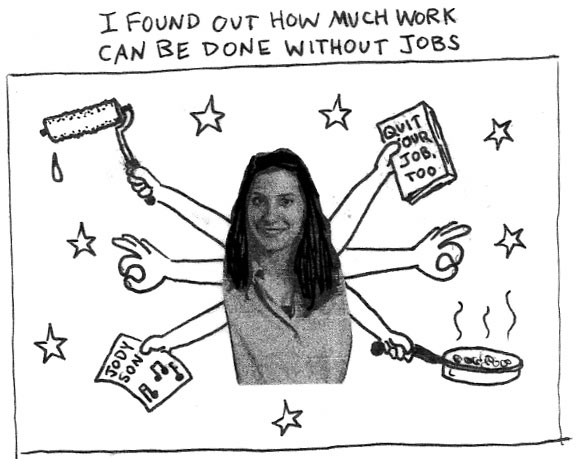 I FOUND OUT HOW MUCH WORK
CAN BE DONE WITHOUT JOBS
QUIT
OUR
JOB,
TOO
JODY
SON